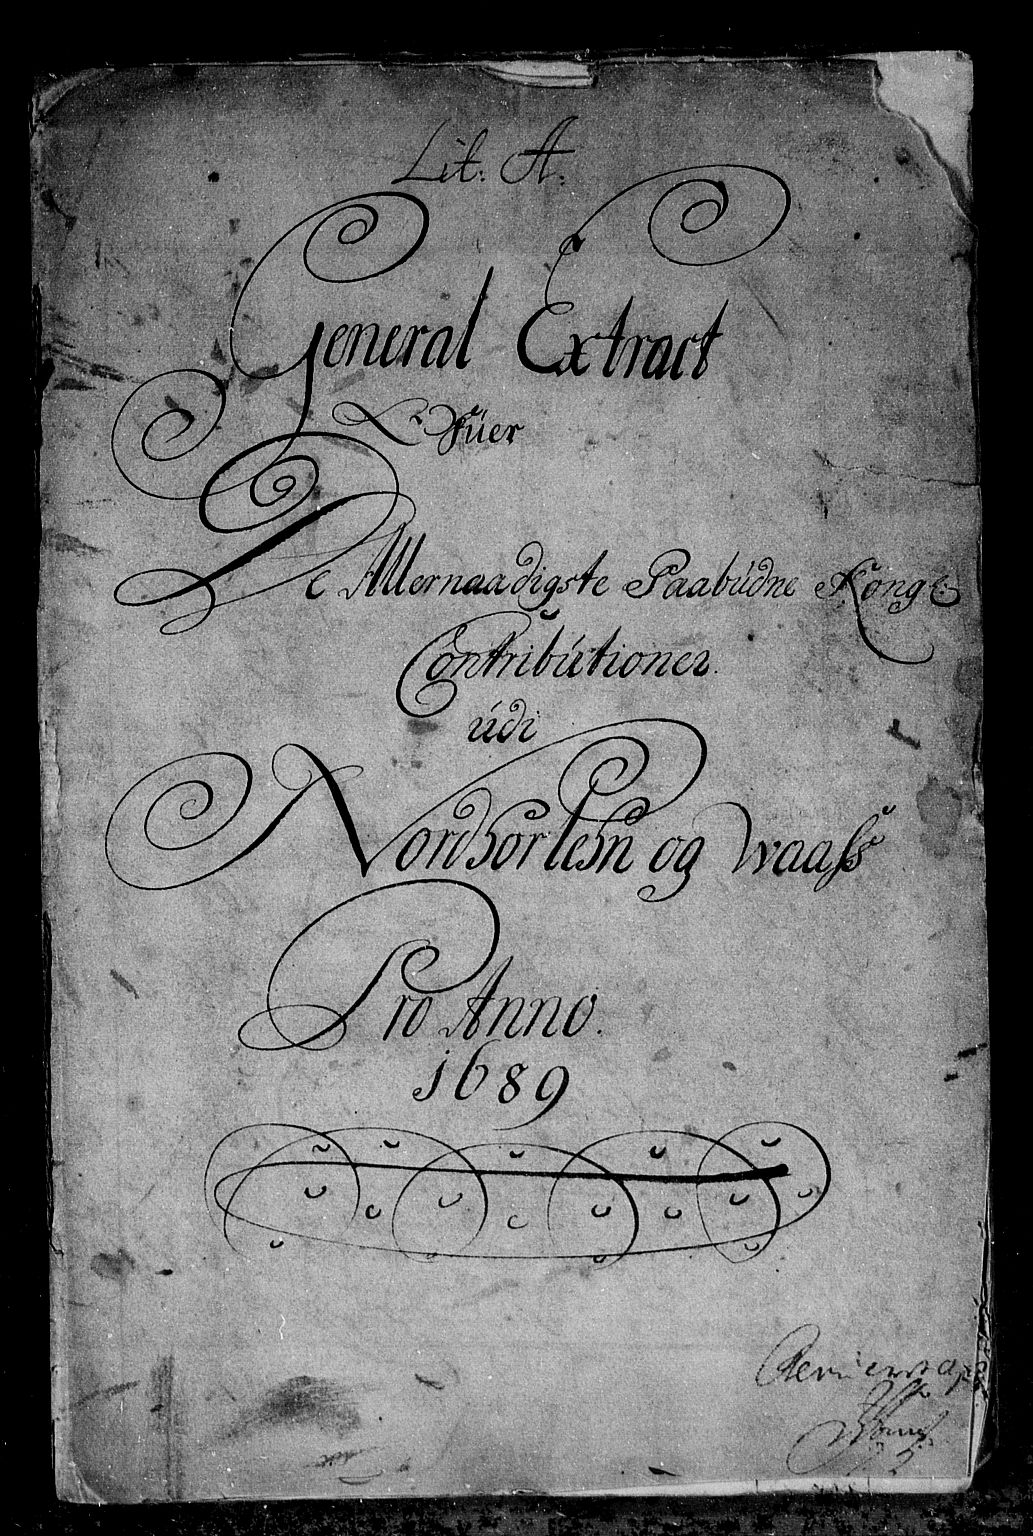 Lit: A:
General Extract
Ofüer
De Allernaadigste Paabúdne Kongl:
Contribútioner
údi
Nordhorlehn og Waass
Pro Anno.
1689